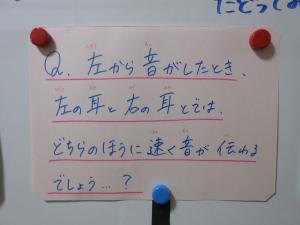 Q. 左から音がしたとき、
左の耳と右の耳とでは、
どちらのほうに速く音が伝わる
でしょう…?